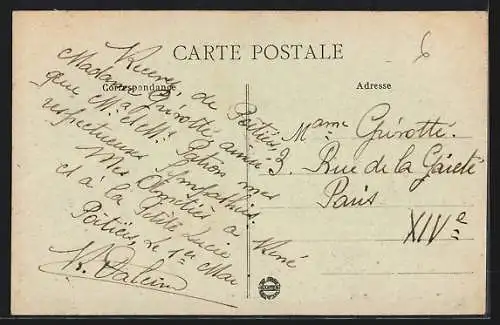 CARTE POSTALE
6
Correspondance
Adresse
Recevez, de Poitiers,
Madame Girotte ainsi
que Mr et Me Patron mes
respectueuses Sympathies.
Mes Amitiés à René
et à la Petite Lucie
Poitiers, le 1er Mai
Mame Girotte.
3. Rue de la Gaieté
Paris
XIVe